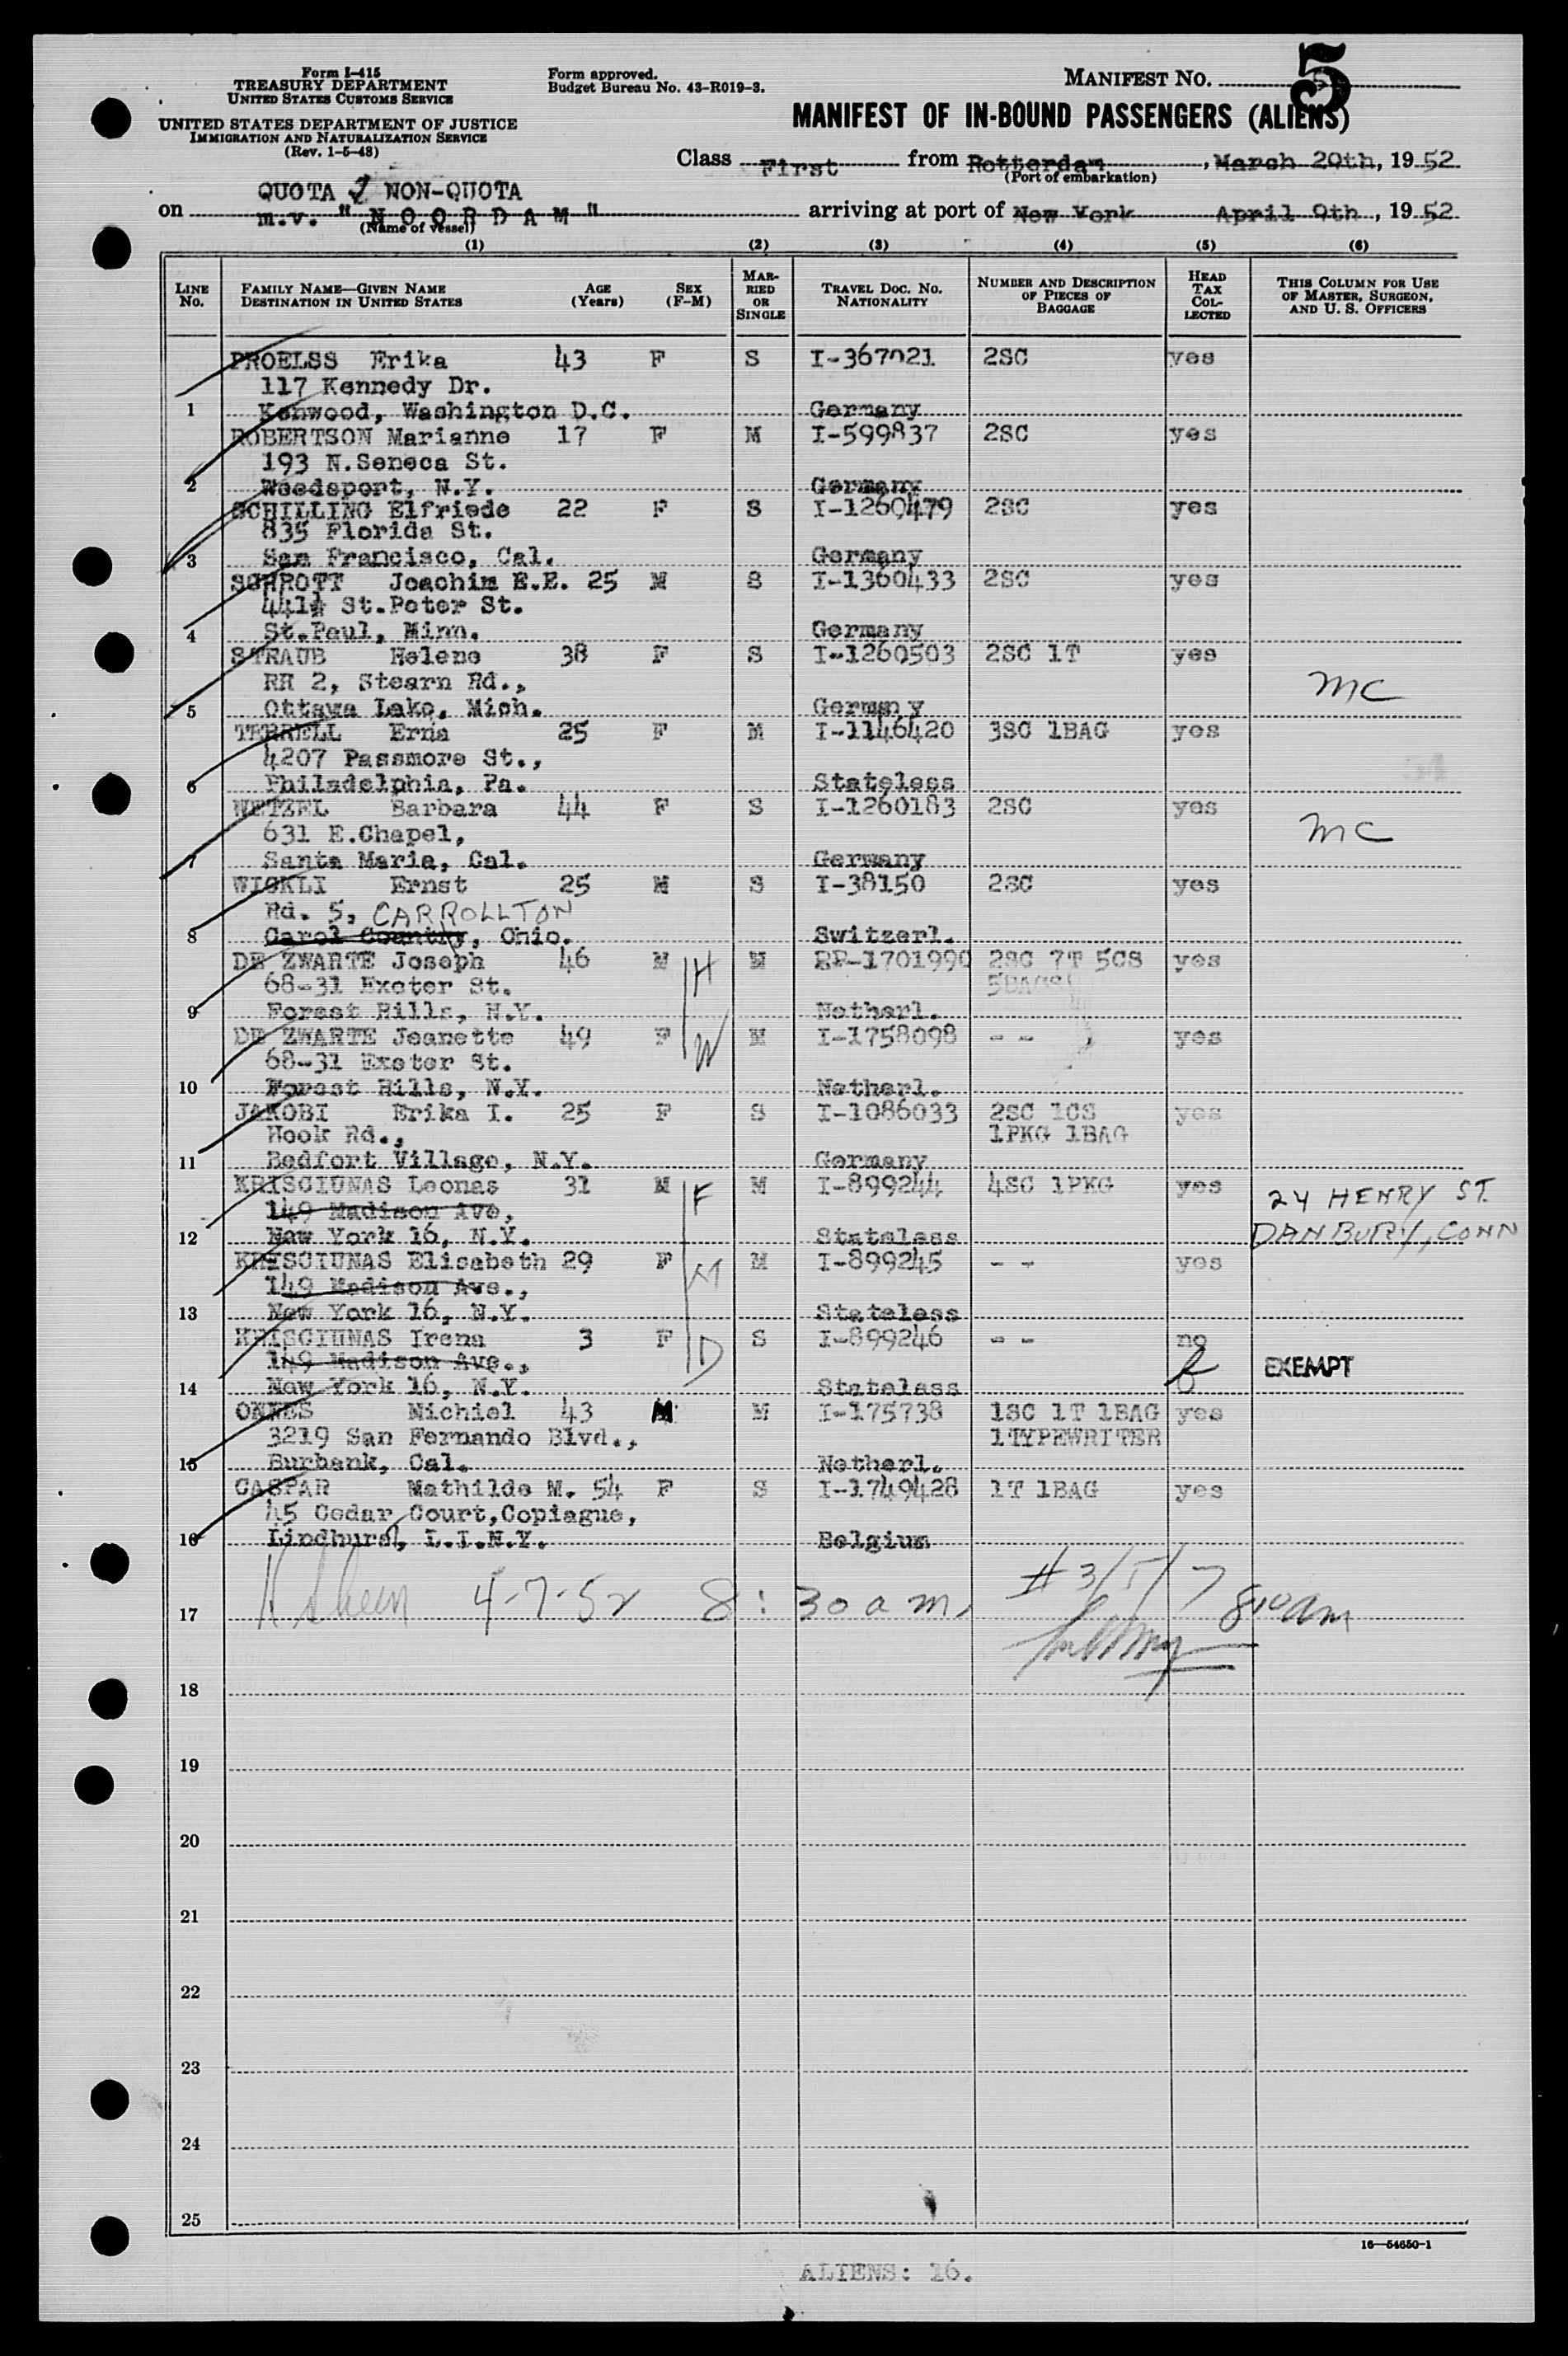 Form I-415
TREASURY DEPARTMENT
UNITED STATES CUSTOMS SERVICE
UNITED STATES DEPARTMENT OF JUSTICE
IMMIGRATION AND NATURALIZATION SERVICE
(Rev. 1-5-48)
Form approved.
Budget Bureau No. 43-R019-3.
MANIFEST NO. 5
MANIFEST OF IN-BOUND PASSENGERS (ALIENS)
Class First from Rotterdam, March 29th, 1952
(Port of embarkation)
QUOTA & NON-QUOTA
on m.v. "NOORDAM" arriving at port of New York April 9th, 1952
(Name of vessel)
(1) (2) (3) (4) (5) (6)
LINE No. FAMILY NAME—GIVEN NAME DESTINATION IN UNITED STATES AGE (Years) SEX (F-M) MARRIED OR SINGLE TRAVEL DOC. NO. NATIONALITY NUMBER AND DESCRIPTION OF PIECES OF BAGGAGE HEAD TAX COLLECTED THIS COLUMN FOR USE OF MASTER, SURGEON, AND U. S. OFFICERS
PROELSS Erika 43 F S I-367021 2SC yes
117 Kennedy Dr.
1 Kenwood, Washington D.C. Germany
ROBERTSON Marianne 17 F M I-599837 2SC yes
193 N.Seneca St.
2 Weedsport, N.Y. Germany
SCHILLING Elfriede 22 F S I-1260479 2SC yes
835 Florida St.
3 San Francisco, Cal. Germany
SCHROTT Joachim E.E. 25 M S I-1360433 2SC yes
441½ St.Peter St.
4 St.Paul, Minn. Germany
STRAUB Helene 38 F S I-1260503 2SC 1T yes
RR 2, Stearn Rd., MC
5 Ottawa Lake, Mich. Germany
TERRELL Erna 25 F M I-1146420 3SC 1BAG yes
4207 Passmore St.,
6 Philadelphia, Pa. Stateless
WETZEL Barbara 44 F S I-1260183 2SC yes
631 E.Chapel, MC
7 Santa Maria, Cal. Germany
WICKLI Ernst 25 M S I-38150 2SC yes
Rd. 5, CARROLLTON
8 Carol Country, Ohio. Switzerl.
DE ZWARTE Joseph 46 M H M RP-1701990 2SC 7T 5CS yes
68-31 Exeter St. 5BAGS
9 Forest Hills, N.Y. Netherl.
DE ZWARTE Jeanette 49 F W M I-1758098 - - yes
68-31 Exeter St.
10 Forest Hills, N.Y. Netherl.
JAKOBI Erika I. 25 F S I-1086033 2SC 1CS yes
Hook Rd., 1PKG 1BAG
11 Bedfort Village, N.Y. Germany
KRISCIUNAS Leonas 31 M F M I-899244 4SC 1PKG yes 24 HENRY ST.
149 Madison Ave,
12 New York 16, N.Y. Stateless DANBURY, CONN
KRISCIUNAS Elisabeth 29 F M M I-899245 - - yes
149 Madison Ave.,
13 New York 16, N.Y. Stateless
KRISCIUNAS Irena 3 F D S I-899246 - - no
149 Madison Ave., EXEMPT
14 New York 16, N.Y. Stateless
ONNES Michiel 43 M M I-175738 1SC 1T 1BAG yes
3219 San Fernando Blvd., 1TYPEWRITER
15 Burbank, Cal. Netherl.
GASPAR Mathilde M. 54 F S I-1749428 1T 1BAG yes
45 Cedar Court,Copiague,
16 Lindhurst, L.I.N.Y. Belgium
17 4-7-52 8:30 a m, # 3/5/7 8:10 am
18
19
20
21
22
23
24
25
16—54650-1
ALIENS: 16.